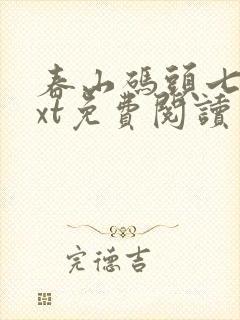 春山碼頭七
xt免費閱讀
完德吉